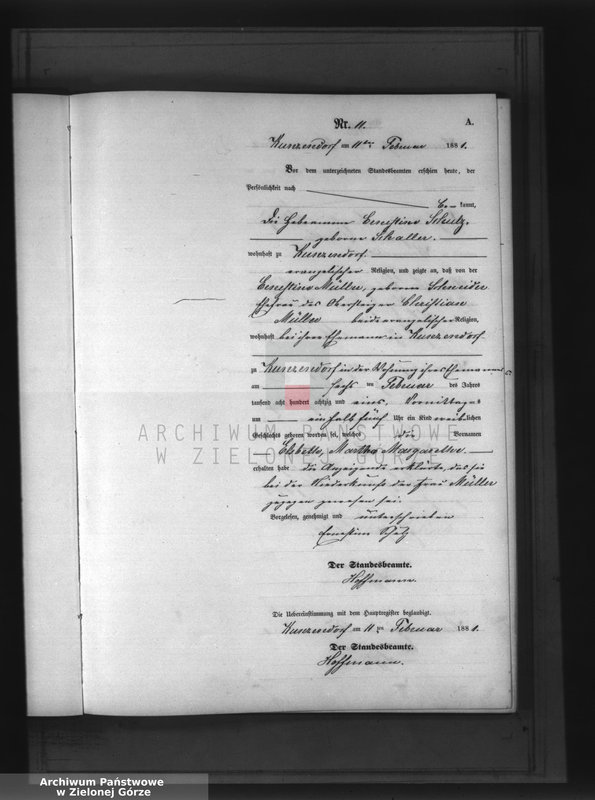 Nr. 11. A.
Kunzendorf am 11ten Februar 1881.
Vor dem unterzeichneten Standesbeamten erschien heute, der
Persönlichkeit nach
be- kannt,
die Hebeamme Ernestine Schulz,
geborne Schaller.
wohnhaft zu Kunzendorf.
evangelischer Religion, und zeigte an, daß von der
Ernestine Müller, geborne Schneider
Ehefrau des Obersteiger Christian
Müller beide evangelischer Religion,
wohnhaft bei ihrem Ehemann in Kunzendorf
zu Kunzendorf in der Wohnung ihres Ehemannes
am sechs ten Februar des Jahres
tausend acht hundert achtzig und eins, Vormittags
um ein halb fünf Uhr ein Kind weiblichen
Geschlechts geboren worden sei, welches die Vornamen
Martha Margarethe
erhalten habe die Anzeigende erklärte, daß sie
bei der Niederkunft der Frau Müller
zugegen gewesen sei.
Vorgelesen, genehmigt und unterschrieben
Ernestine
Der Standesbeamte.
Hoffmann.
Die Uebereinstimmung mit dem Hauptregister beglaubigt.
Kunzendorf am 11ten Februar 1881.
Der Standesbeamte.
Hoffmann.
ARCHIWUM PAŃSTWOWE
W ZIELONEJ GÓRZE
Archiwum Państwowe
w Zielonej Górze